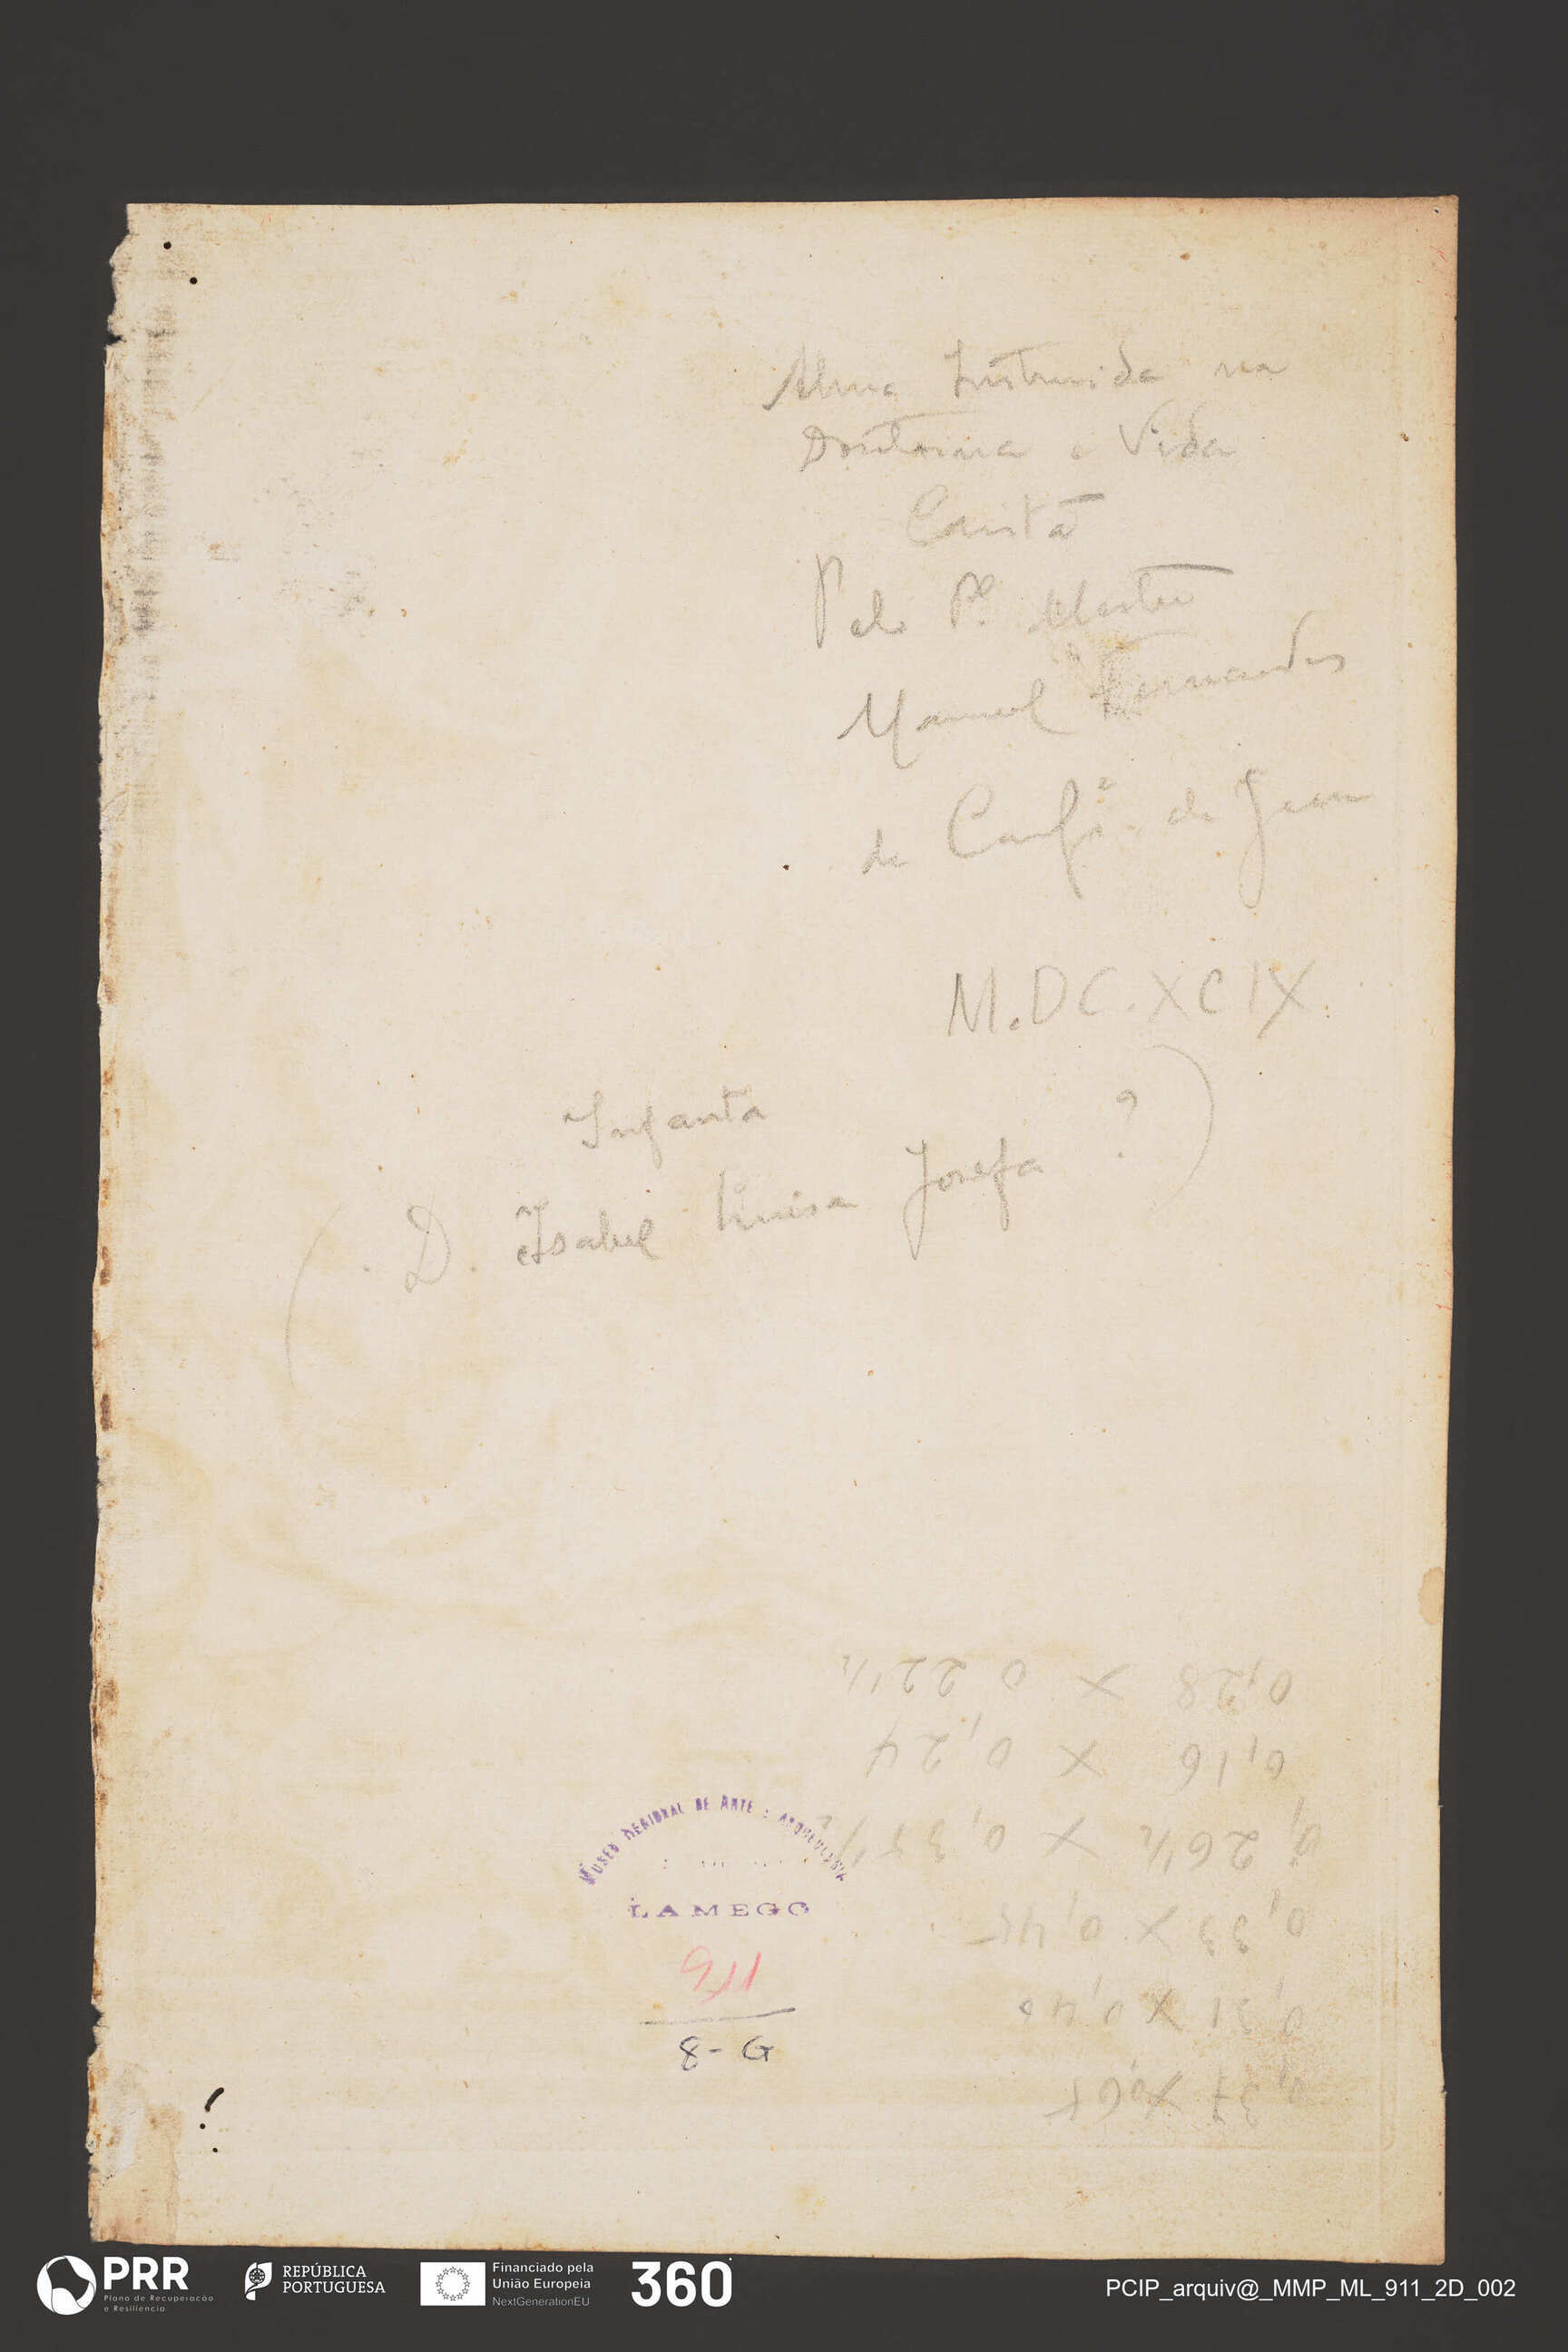 Alma Instruida na
Doutrina e Vida
Cristã
Pelo Pe. Mestre
Manuel Fernandes
da Compa. de Jesus
M.DC.XCIX.
Infanta
(D. Isabel Luisa Josefa ?)
0,28 X 0 22 1/2
0,16 X 0,24
0,26 1/2 X 0,38 1/2
0,33 X 0,45
0,31 X 0,40
0,37 X 0,65
MUSEU REGIONAL DE ARTE E ARQUEOLOGIA
LAMEGO
8-G
PRR
Plano de Recuperação
e Resiliência
REPÚBLICA
PORTUGUESA
Financiado pela
União Europeia
NextGenerationEU
360
PCIP_arquiv@_MMP_ML_911_2D_002